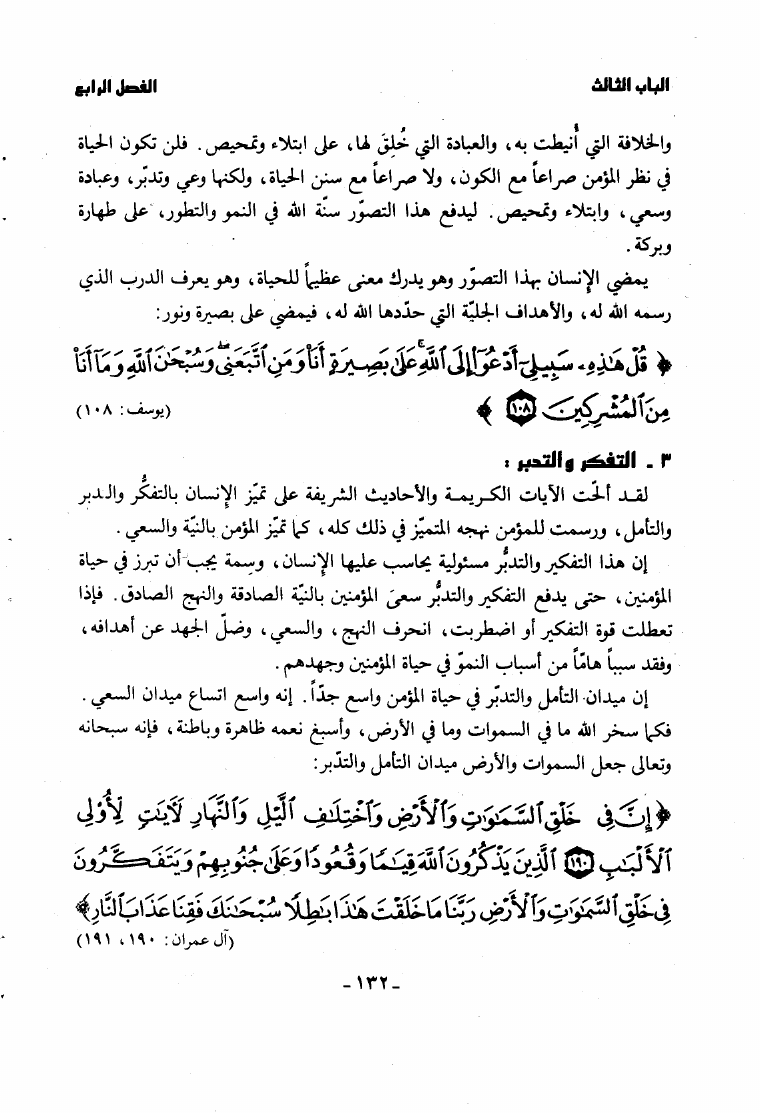 الباب الثالث
الفصل الرابع
والخلافة التي أُنيطت به، والعبادة التي خُلِقَ لها، على ابتلاء وتمحيص. فلن تكون الحياة
في نظر المؤمن صراعاً مع الكون، ولا صراعاً مع سنن الحياة، ولكنها وعي وتدبّر، وعبادة
وسعي، وابتلاء وتمحيص. ليدفع هذا التصوّر سنّة الله في النمو والتطور، على طهارة
وبركة.
يمضي الإنسان بهذا التصوّر وهو يدرك معنى عظيماً للحياة، وهو يعرف الدرب الذي
رسمه الله له، والأهداف الجليّة التي حدّدها الله له، فيمضي على بصيرة ونور:
﴿ قُلْ هَٰذِهِۦ سَبِيلِىٓ أَدْعُوٓا۟ إِلَى ٱللَّهِ ۚ عَلَىٰ بَصِيرَةٍ أَنَا۠ وَمَنِ ٱتَّبَعَنِى ۖ وَسُبْحَٰنَ ٱللَّهِ وَمَآ أَنَا۠
مِنَ ٱلْمُشْرِكِينَ ١٠٨ ﴾
(يوسف: ١٠٨)
٣ - التفكر والتدبر :
لقد ألحّت الآيات الكريمة والأحاديث الشريفة على تميّز الإنسان بالتفكُّر والدبر
والتأمل، ورسمت للمؤمن نهجه المتميّز في ذلك كله، كما تميّز المؤمن بالنيّة والسعي.
إن هذا التفكير والتدبُّر مسئولية يحاسب عليها الإنسان، وسمة يجب أن تبرز في حياة
المؤمنين، حتى يدفع التفكير والتدبُّر سعيَ المؤمنين بالنيّة الصادقة والنهج الصادق. فإذا
تعطلت قوة التفكير أو اضطربت، انحرف النهج، والسعي، وضلّ الجهد عن أهدافه،
وفقد سبباً هامّاً من أسباب النموّ في حياة المؤمنين وجهدهم.
إن ميدان التأمل والتدبّر في حياة المؤمن واسع جدّاً. إنه واسع اتساع ميدان السعي.
فكما سخر الله ما في السموات وما في الأرض، وأسبغ نعمه ظاهرة وباطنة، فإنه سبحانه
وتعالى جعل السموات والأرض ميدان التأمل والتدّبر:
﴿ إِنَّ فِى خَلْقِ ٱلسَّمَٰوَٰتِ وَٱلْأَرْضِ وَٱخْتِلَٰفِ ٱلَّيْلِ وَٱلنَّهَارِ لَءَايَٰتٍ لِّأُو۟لِى
ٱلْأَلْبَٰبِ ١٩٠ ٱلَّذِينَ يَذْكُرُونَ ٱللَّهَ قِيَٰمًا وَقُعُودًا وَعَلَىٰ جُنُوبِهِمْ وَيَتَفَكَّرُونَ
فِى خَلْقِ ٱلسَّمَٰوَٰتِ وَٱلْأَرْضِ رَبَّنَا مَا خَلَقْتَ هَٰذَا بَٰطِلًا سُبْحَٰنَكَ فَقِنَا عَذَابَ ٱلنَّارِ ﴾
(آل عمران: ١٩٠، ١٩١)
- ١٣٢ -